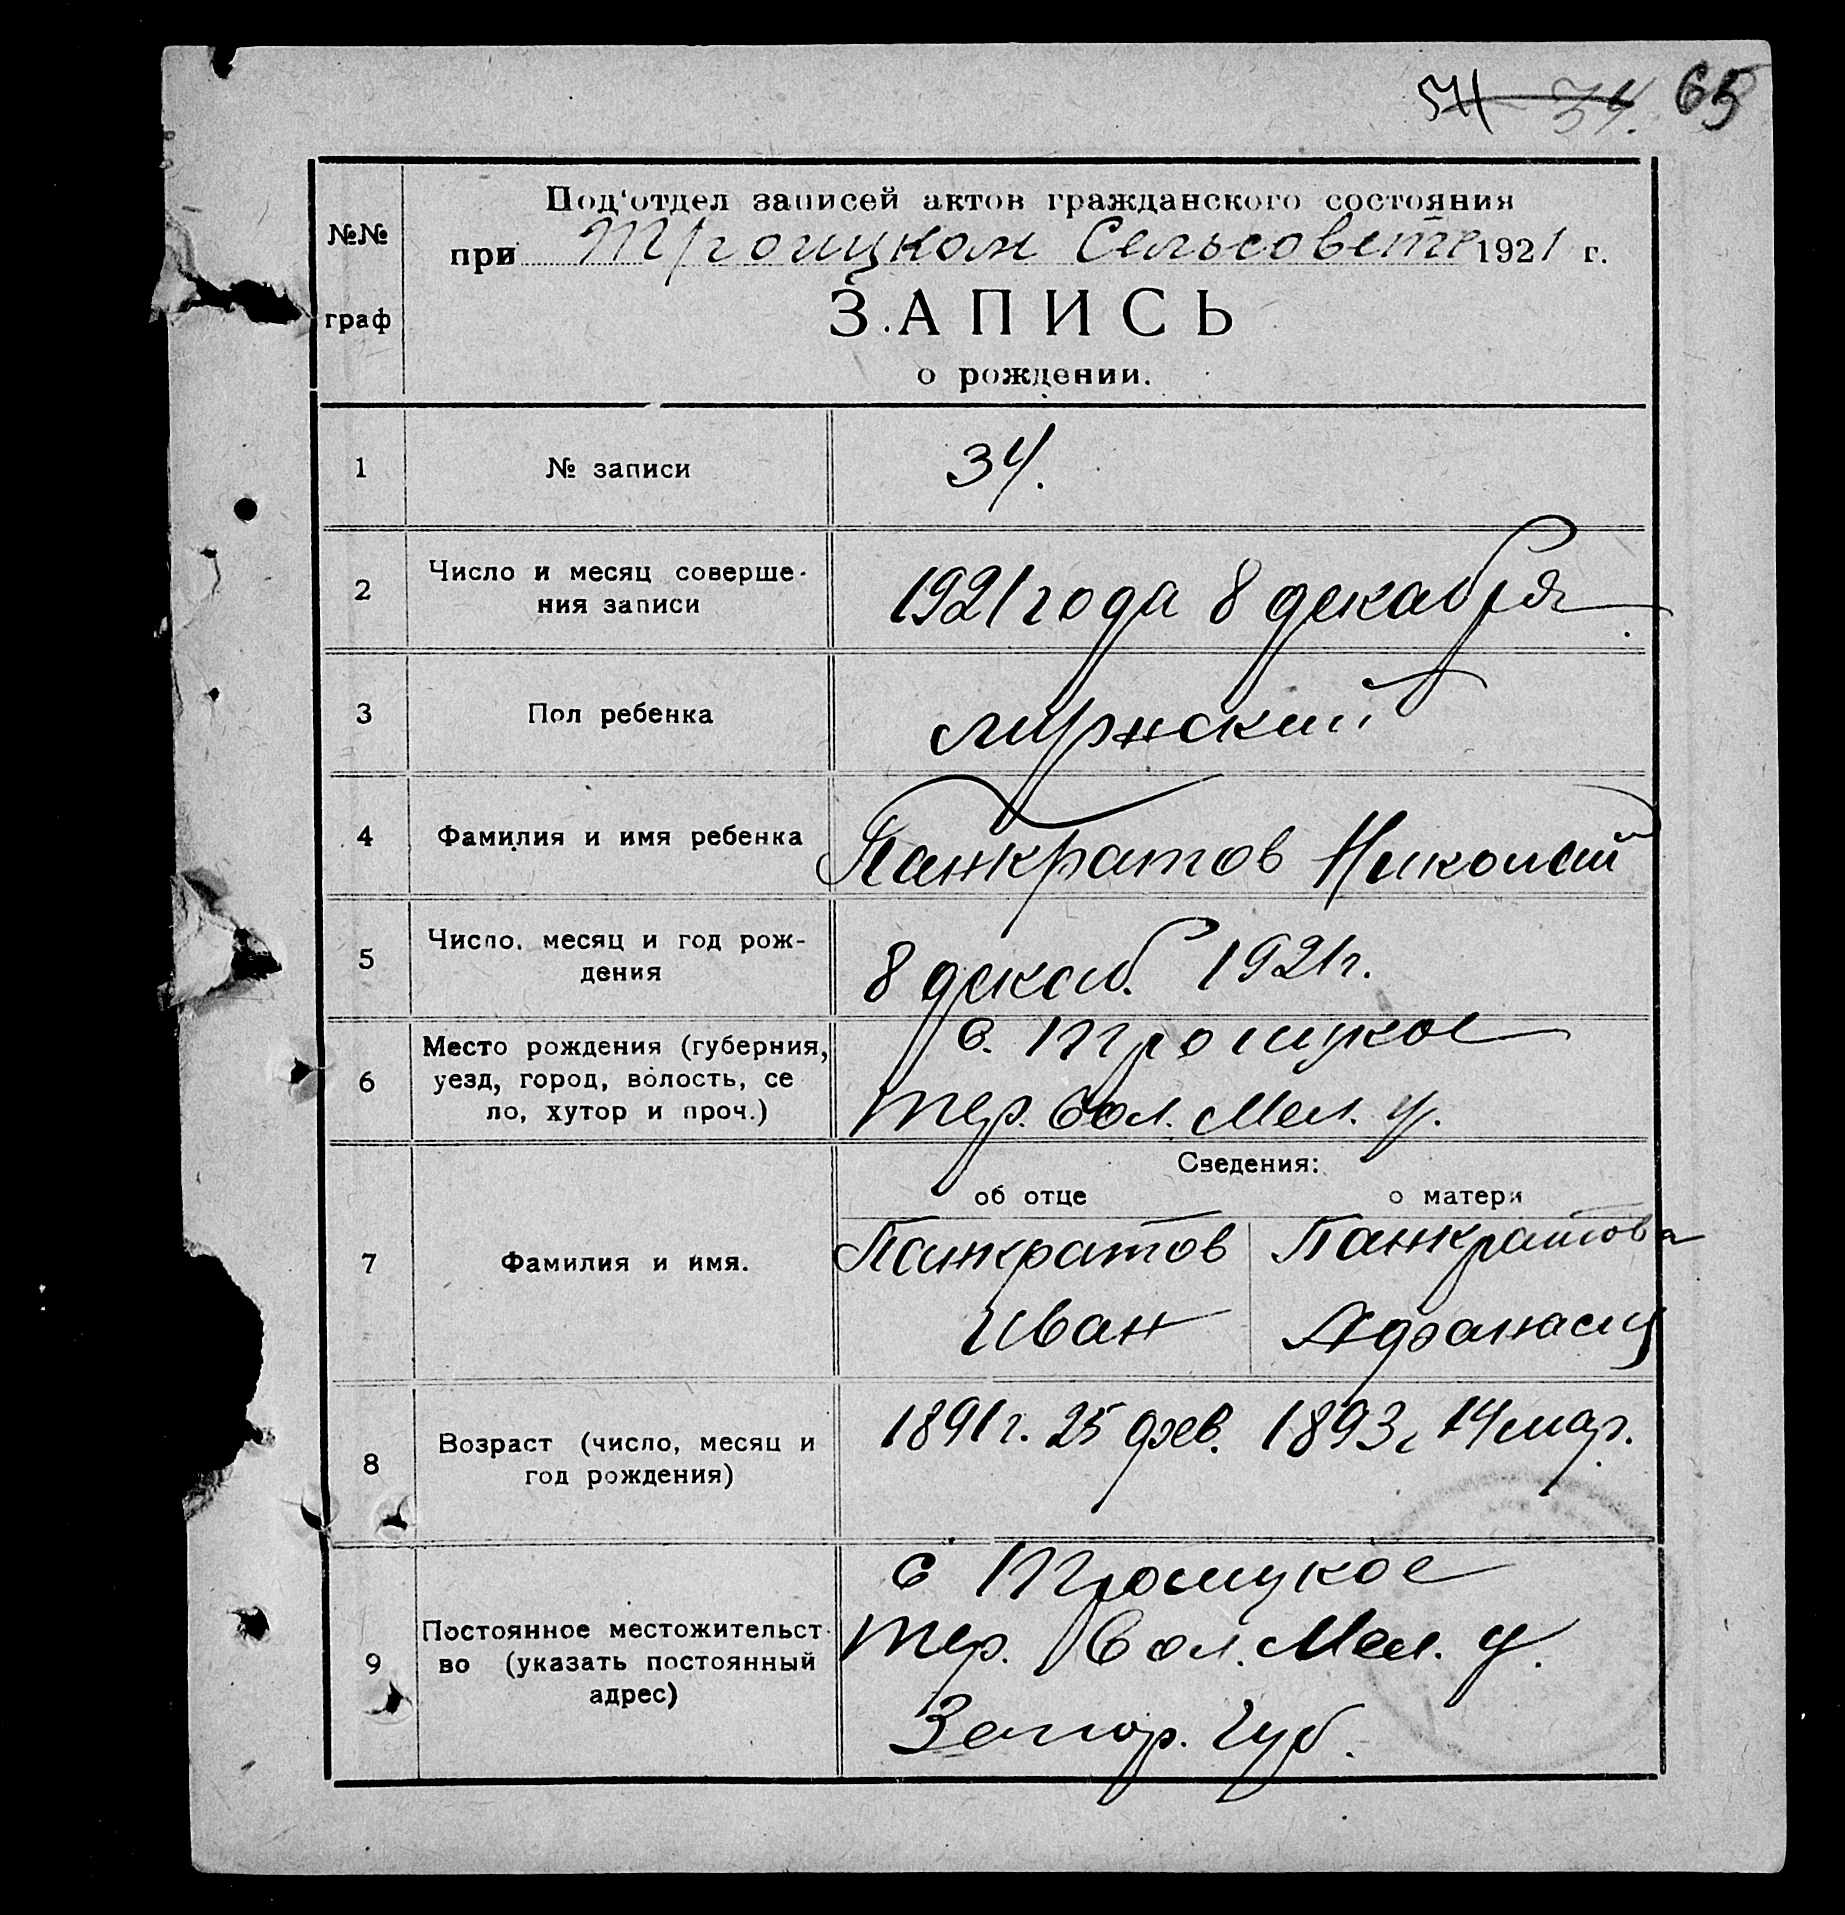 54 34. 65
№№ граф
Под'отдел записей актов гражданского состояния
при Троицком Сельсовете 1921 г.
ЗАПИСЬ
о рождении.
1 № записи 34.
2 Число и месяц соверше-
ния записи 1921 года 8 декабря
3 Пол ребенка мужской
4 Фамилия и имя ребенка Панкратов Николай
5 Число, месяц и год рож-
дения 8 декаб. 1921 г.
6 Место рождения (губерния, с. Троицкое
уезд, город, волость, се
ло, хутор и проч.) Тер. вол. Мел. у.
Сведения:
об отце о матери
7 Фамилия и имя. Панкратов Панкратова
Иван Афанасия
8 Возраст (число, месяц и 1891 г. 25 фев. 1893 г 14 мар.
год рождения)
с Троицкое
9 Постоянное местожительст-
во (указать постоянный Тер. Вол. Мел. у.
адрес)
Запор. Губ.